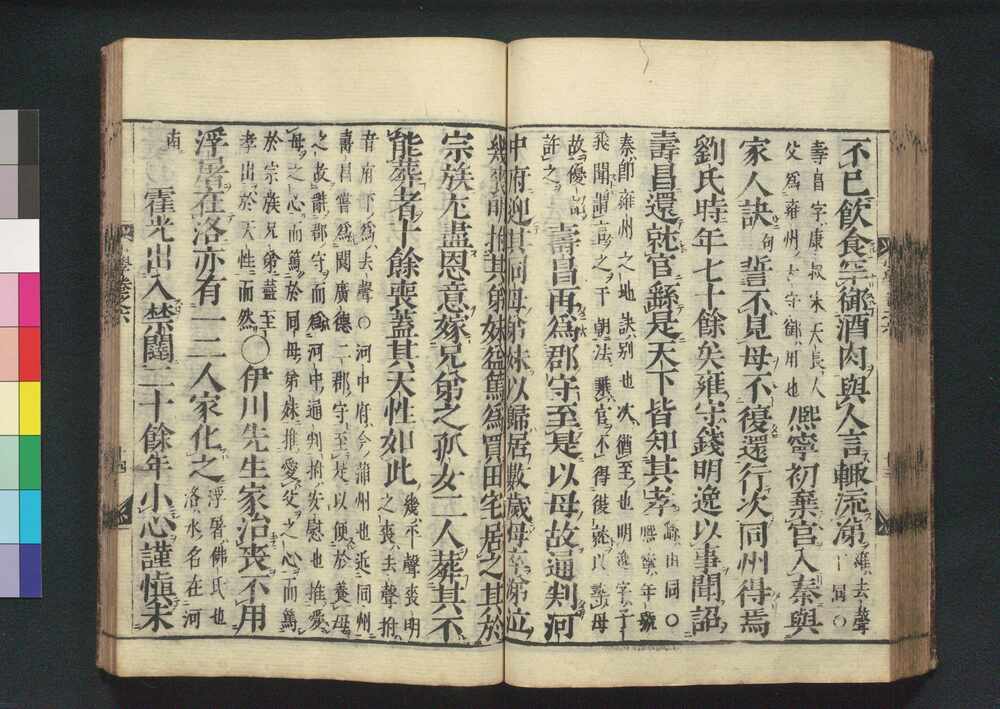 不已飲食罕御酒肉與人言輒流涕
雍去聲
壽昌字康叔宋天長人
父爲雍州
守御用也
熈寧初棄官入秦與
家人訣誓不見母不復還行次同州得焉
劉氏時年七十餘矣雍守錢明逸以事聞詔
壽昌還就官繇是天下皆知其孝
繇由同○
秦即雍州之地訣別也次猶至也明逸字子
故優詔
許之
壽昌再爲郡守至是以母故通判河
中府迎其同母弟妹以歸居數歲母卒
幾喪明拊其弟妹益篤爲買田宅居之其於
宗族尤盡恩意嫁兄弟之孤女二人葬其不
能葬者十餘喪蓋其天性如此
幾平聲喪明
之喪去聲拊
音府下爲去聲○河中府今蒲州也近同州
壽昌嘗爲閬廣德二郡守至是以便於養母
之故辭郡守而爲河中通判拊安慰也推愛
母之心而篤於同母弟妹推愛父之心而篤
於宗族兄弟蓋至
孝出於天性而然
○伊川先生家治喪不用
浮屠在洛亦有一二人家化之
浮屠佛氏也
洛水名在河
南
霍光出入禁闥二十餘年小心謹愼未